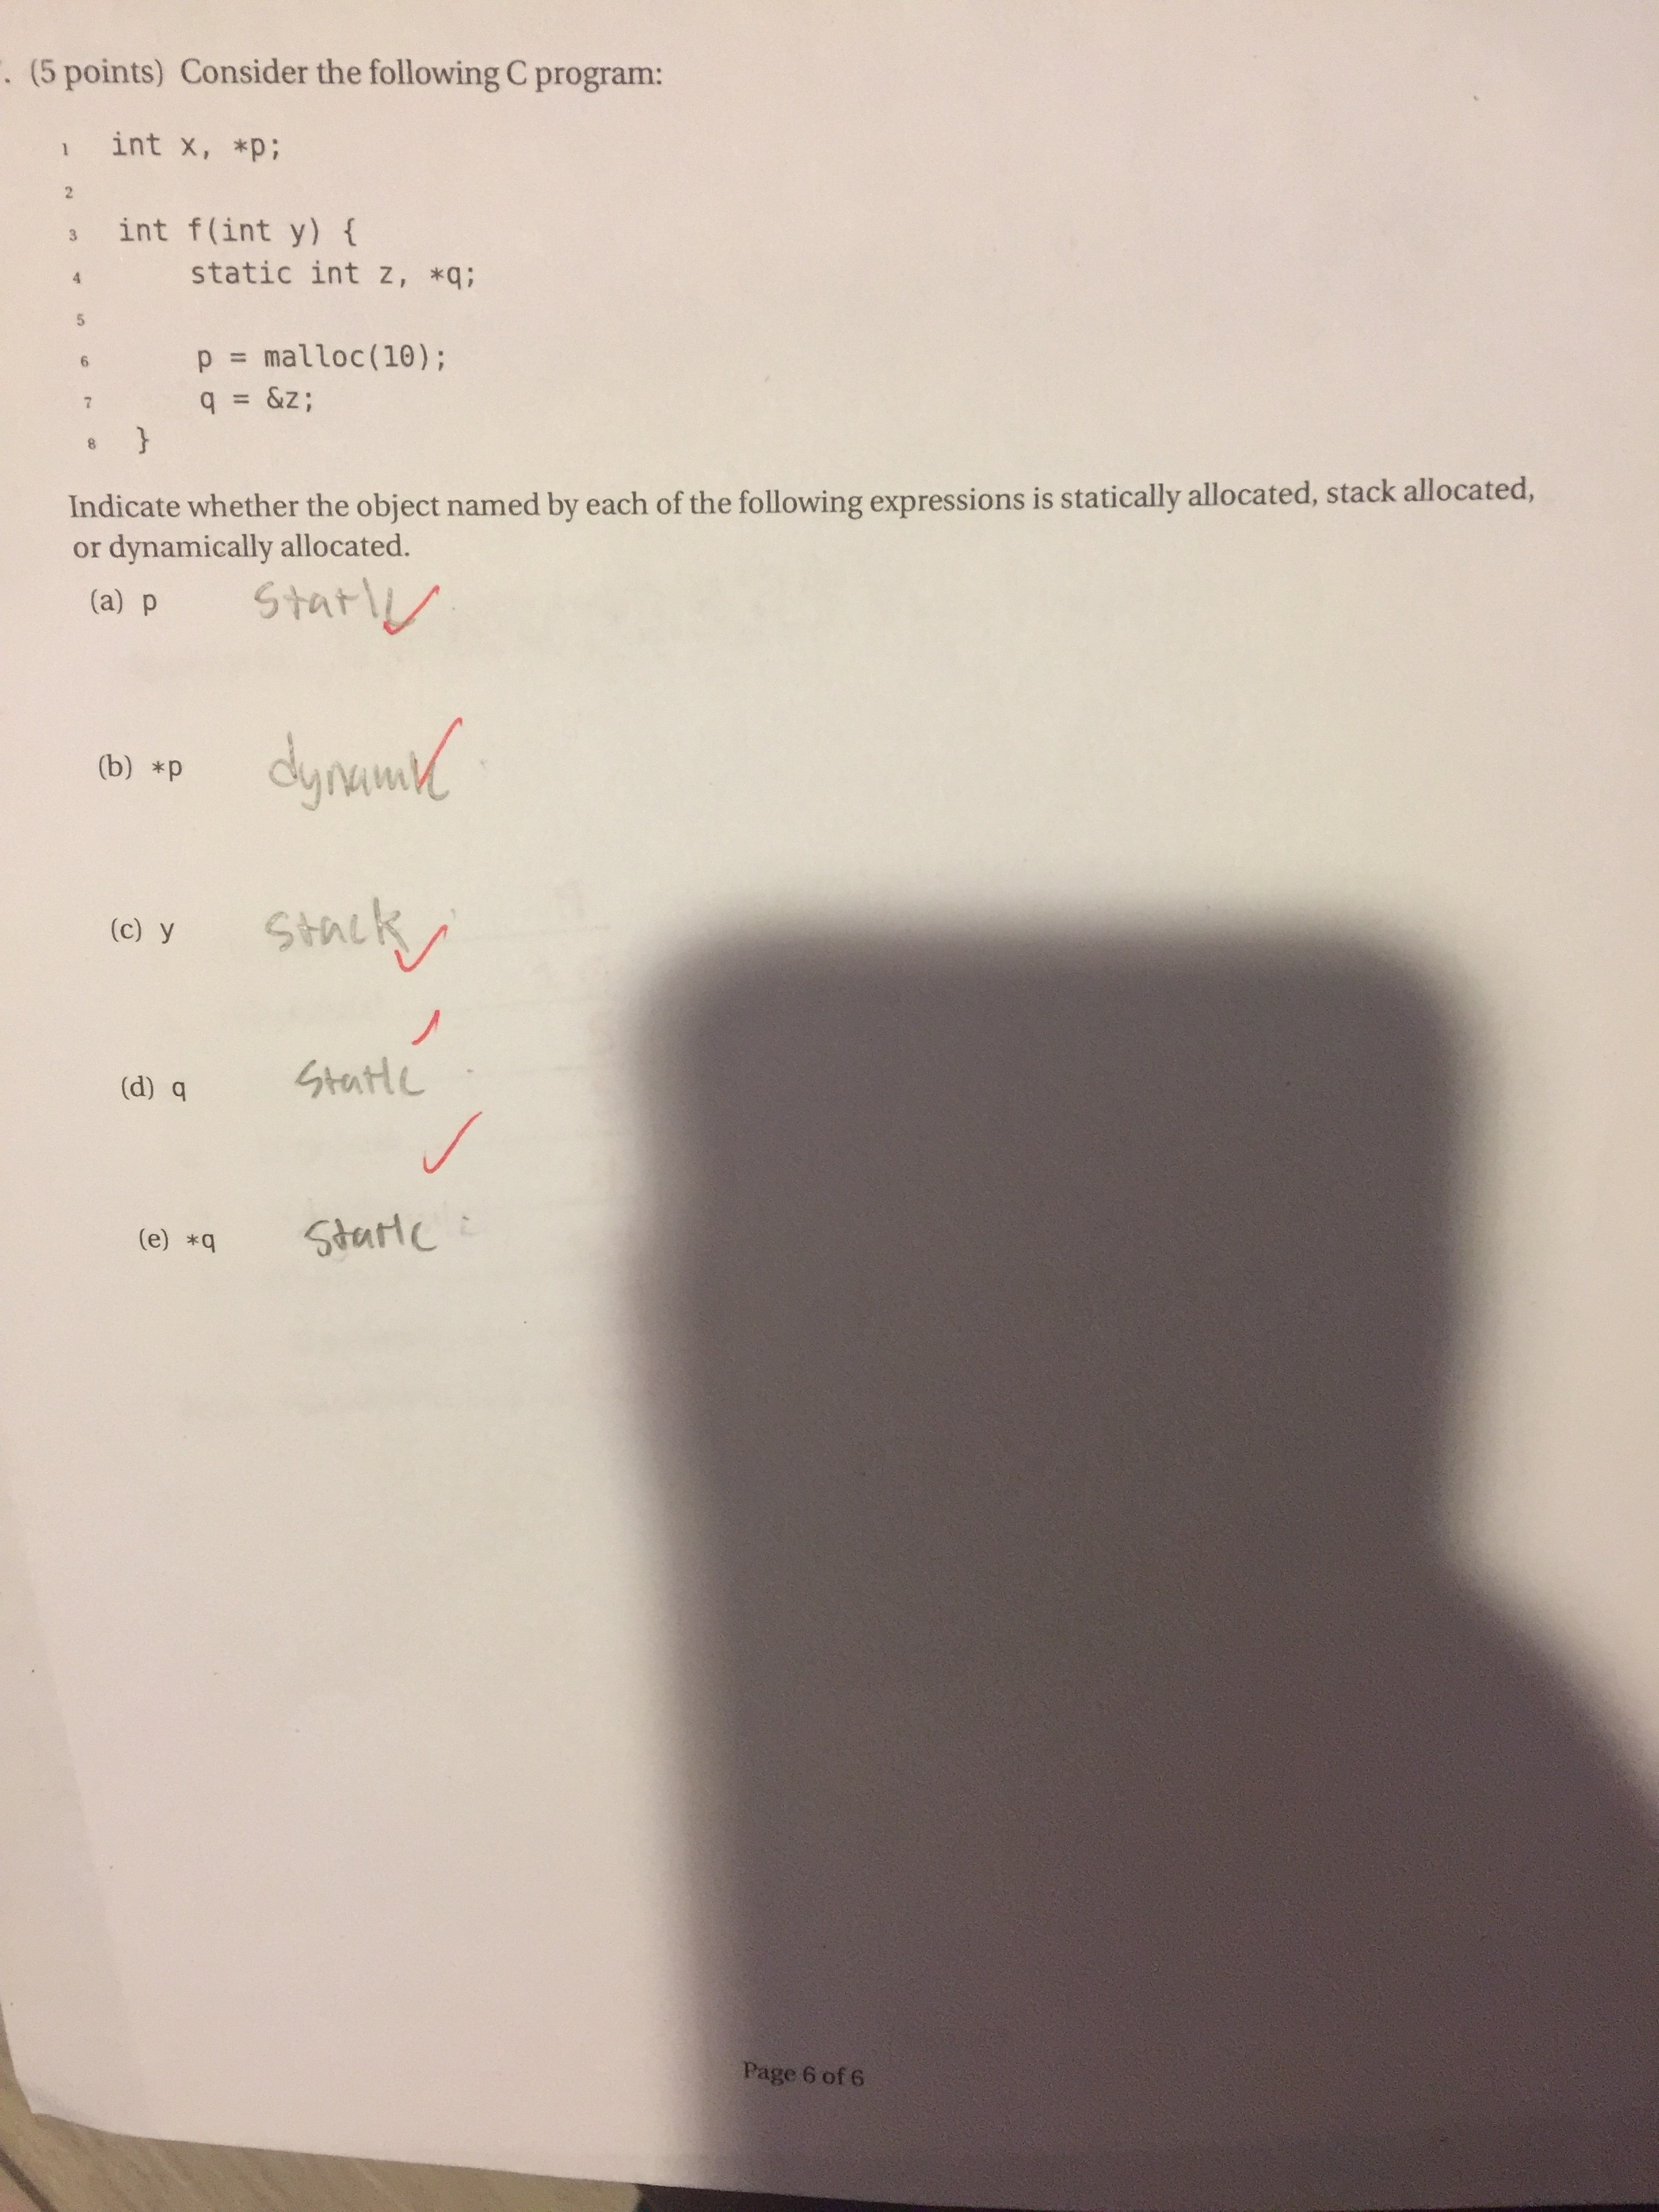 . (5 points) Consider the following C program:
1 int x, *p;
2
3 int f(int y) {
4 static int z, *q;
5
6 p = malloc(10);
7 q = &z;
8 }
Indicate whether the object named by each of the following expressions is statically allocated, stack allocated,
or dynamically allocated.
(a) p static
(b) *p dynamic
(c) y stack
(d) q static
(e) *q static
Page 6 of 6